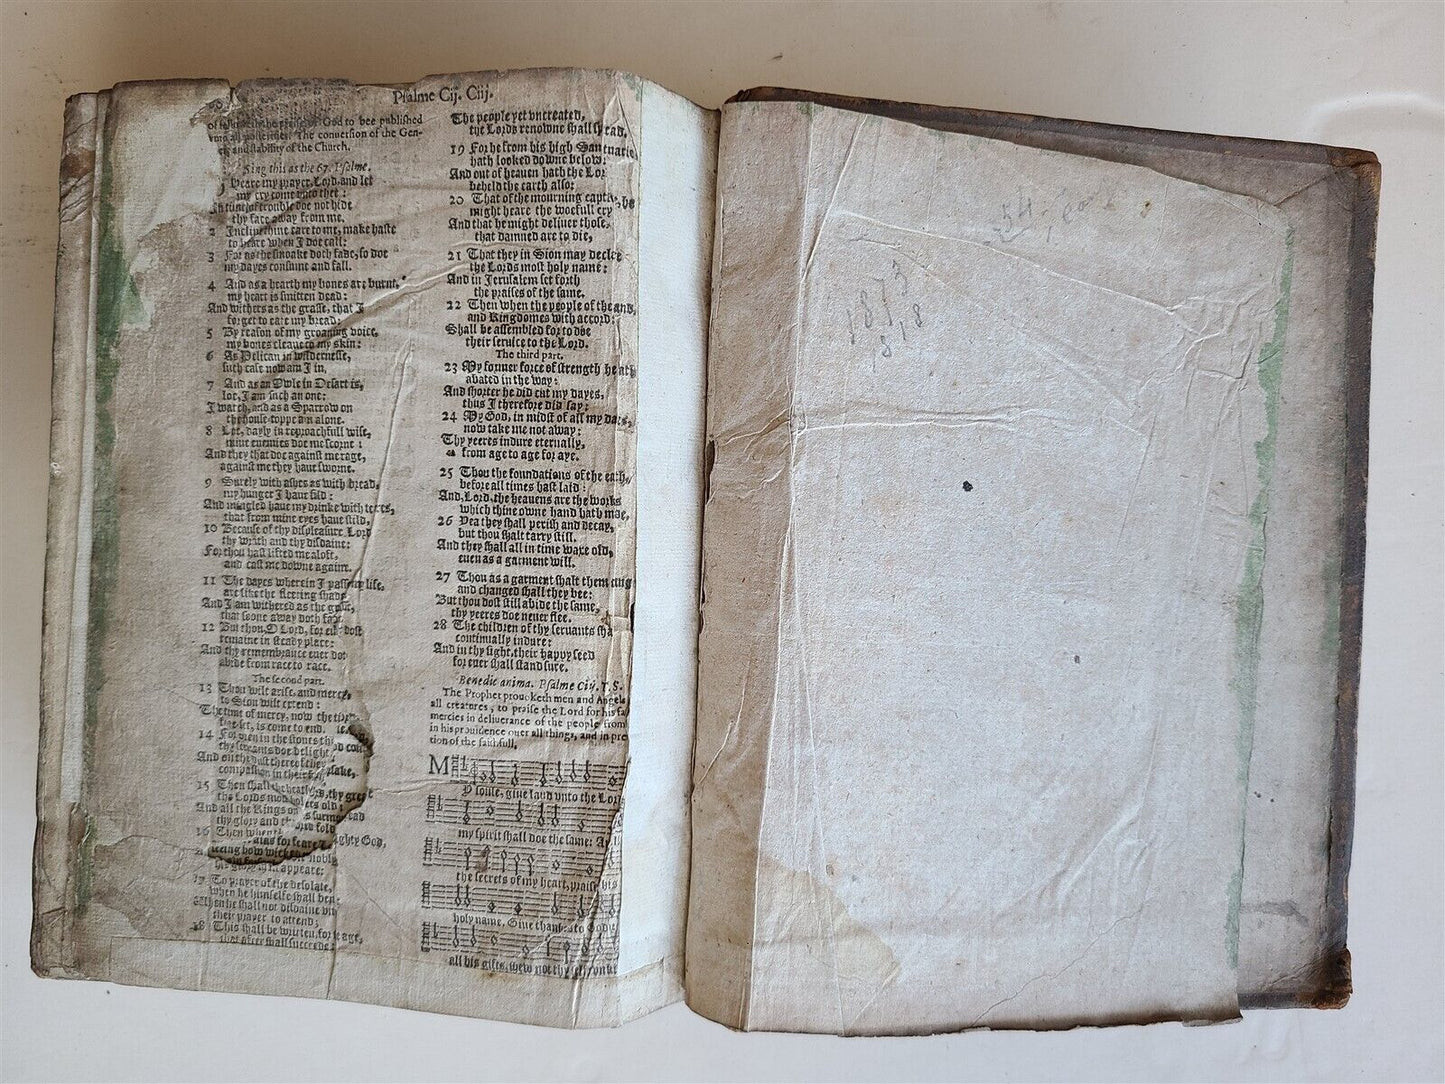 Psalme Cij. Ciij.
God to bee published
The conuersion of the Gen-
and stability of the Church.
Sing this as the 67. Psalme.
Heare my prayer, Lord, and let
my cry come vnto thee:
In time of trouble doe not hide
thy face away from me.
2 Incline thine eare to me, make haste
to heare when I doe call:
3 For as the smoake doth fade, so doe
my dayes consume and fall.
4 And as a hearth my bones are burnt,
my heart is smitten dead:
And withers as the grasse, that I
forget to eate my bread:
5 By reason of my groaning voice,
my bones cleaue to my skin:
6 As Pelican in wildernesse,
such case now am I in,
7 And as an Owle in Desart is,
loe, I am such an one:
I watch, and as a Sparrow on
the house toppe am alone.
8 Loe, dayly in reproachfull wise,
mine enemies doe me scorne:
And they that doe against me rage,
against me they haue sworne.
9 Surely with ashes as with bread,
my hunger I haue fild:
And mingled haue my drinke with teares,
that from mine eyes haue stild,
10 Because of thy displeasure Lord
thy wrath and thy disdaine:
For thou hast lifted me aloft,
and cast me downe againe.
11 The dayes wherein I passe my life,
are like the fleering shade
And I am withered as the grasse,
that soone away doth fade
12 But thou, O Lord, for euer dost
remaine in steady place:
And thy remembrance euer dot
abide from race to race.
The second part.
13 Thou wilt arise, and mercy
to Sion wilt extend:
The time of mercy, now the time
is come to end.
14 For euen in the stones
thy seruants doe delight
And on the dust thereof they
compassion in their
15 Then shall the heathen
the Lords most holy
And all the Kings
thy glory and
16 Then when
mighty God,
appeare:
17 To prayer of the desolate,
when he himselfe shall
When he shall not disdaine
their prayer to attend;
18 This shall be written for age,
that after shall succeede:
The people yet vncreated,
the Lords renowne shall spread,
19 For he from his high Sanctuarie
hath looked downe below:
And out of heauen hath the Lor
beheld the earth also:
20 That of the mourning captiue, he
might heare the woefull cry
And that he might deliuer those,
that damned are to die,
21 That they in Sion may declare
the Lords most holy name:
And in Jerusalem set forth
the praises of the same.
22 Then when the people of the land,
and Kingdomes with accord:
Shall be assembled for to doe
their seruice to the Lord.
The third part.
23 My former force of strength he hath
abated in the way:
And shorter he did cut my dayes,
thus I therefore did say:
24 My God, in midst of all my daies,
now take me not away:
Thy yeeres indure eternally,
from age to age for aye.
25 Thou the foundations of the earth,
before all times hast laid:
And, Lord, the heauens are the works
which thine owne hand hath mae,
26 Yea they shall perish and decay,
but thou shalt tarry still.
And they shall all in time waxe old,
euen as a garment will.
27 Thou as a garment shalt them
and changed shall they bee:
But thou dost still abide the same,
thy yeeres doe neuer flee.
28 The children of thy seruants sha
continually indure:
And in thy sight, their happy seed
for euer shall stand sure.
Benedic anima. Psalme Ciij. T. S.
The Prophet prouoketh men and Angels
all creatures, to praise the Lord for his fa
mercies in deliuerance of the people from
in his prouidence ouer all things, and in pre
tion of the faithfull,
MY soule, giue laud vnto the Lor
my spirit shall doe the same: A
the secrets of my heart, praise his
holy name. Giue thanks to God
all his gifts, shew not thy selfe vnki